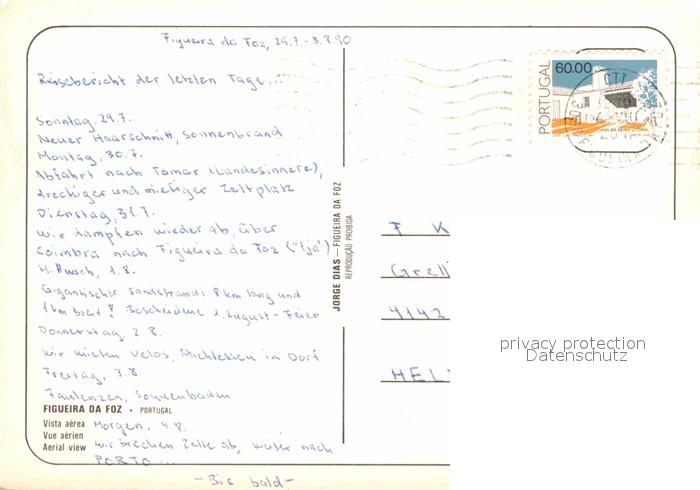 Figueira da Foz, 29.7.-3.8.90
Reisebericht der letzten Tage...
Sonntag, 29.7.
Neuer Haarschnitt, Sonnenbrand
Montag, 30.7.
Abfahrt nach Tomar (Landesinnere),
dreckiger und miefiger Zeltplatz
Dienstag, 31.7.
Wir dampfen wieder ab, über
Coimbra nach Figueira da Foz ("Ija")
Mittwoch, 1.8.
Gigantischer Sandstrand: 8 km lang und
1 km breit! Bescheidene 1. August-Feier
Donnerstag, 2.8.
Wir mieten Velos, Nachtessen im Dorf
Freitag, 3.8.
Faulenzen, Sonnenbaden
Morgen, 4.8.
wir brechen Zelte ab, weiter nach
PORTO ...
- Bis bald -
FIGUEIRA DA FOZ • PORTUGAL
Vista aérea
Vue aérien
Aerial view
JORGE DIAS — FIGUEIRA DA FOZ
REPRODUÇÃO PROIBIDA
PORTUGAL
60.00
CASA DA BEIRA LITORAL
CTT
F K
Grell
4142
HEL
privacy protection
Datenschutz